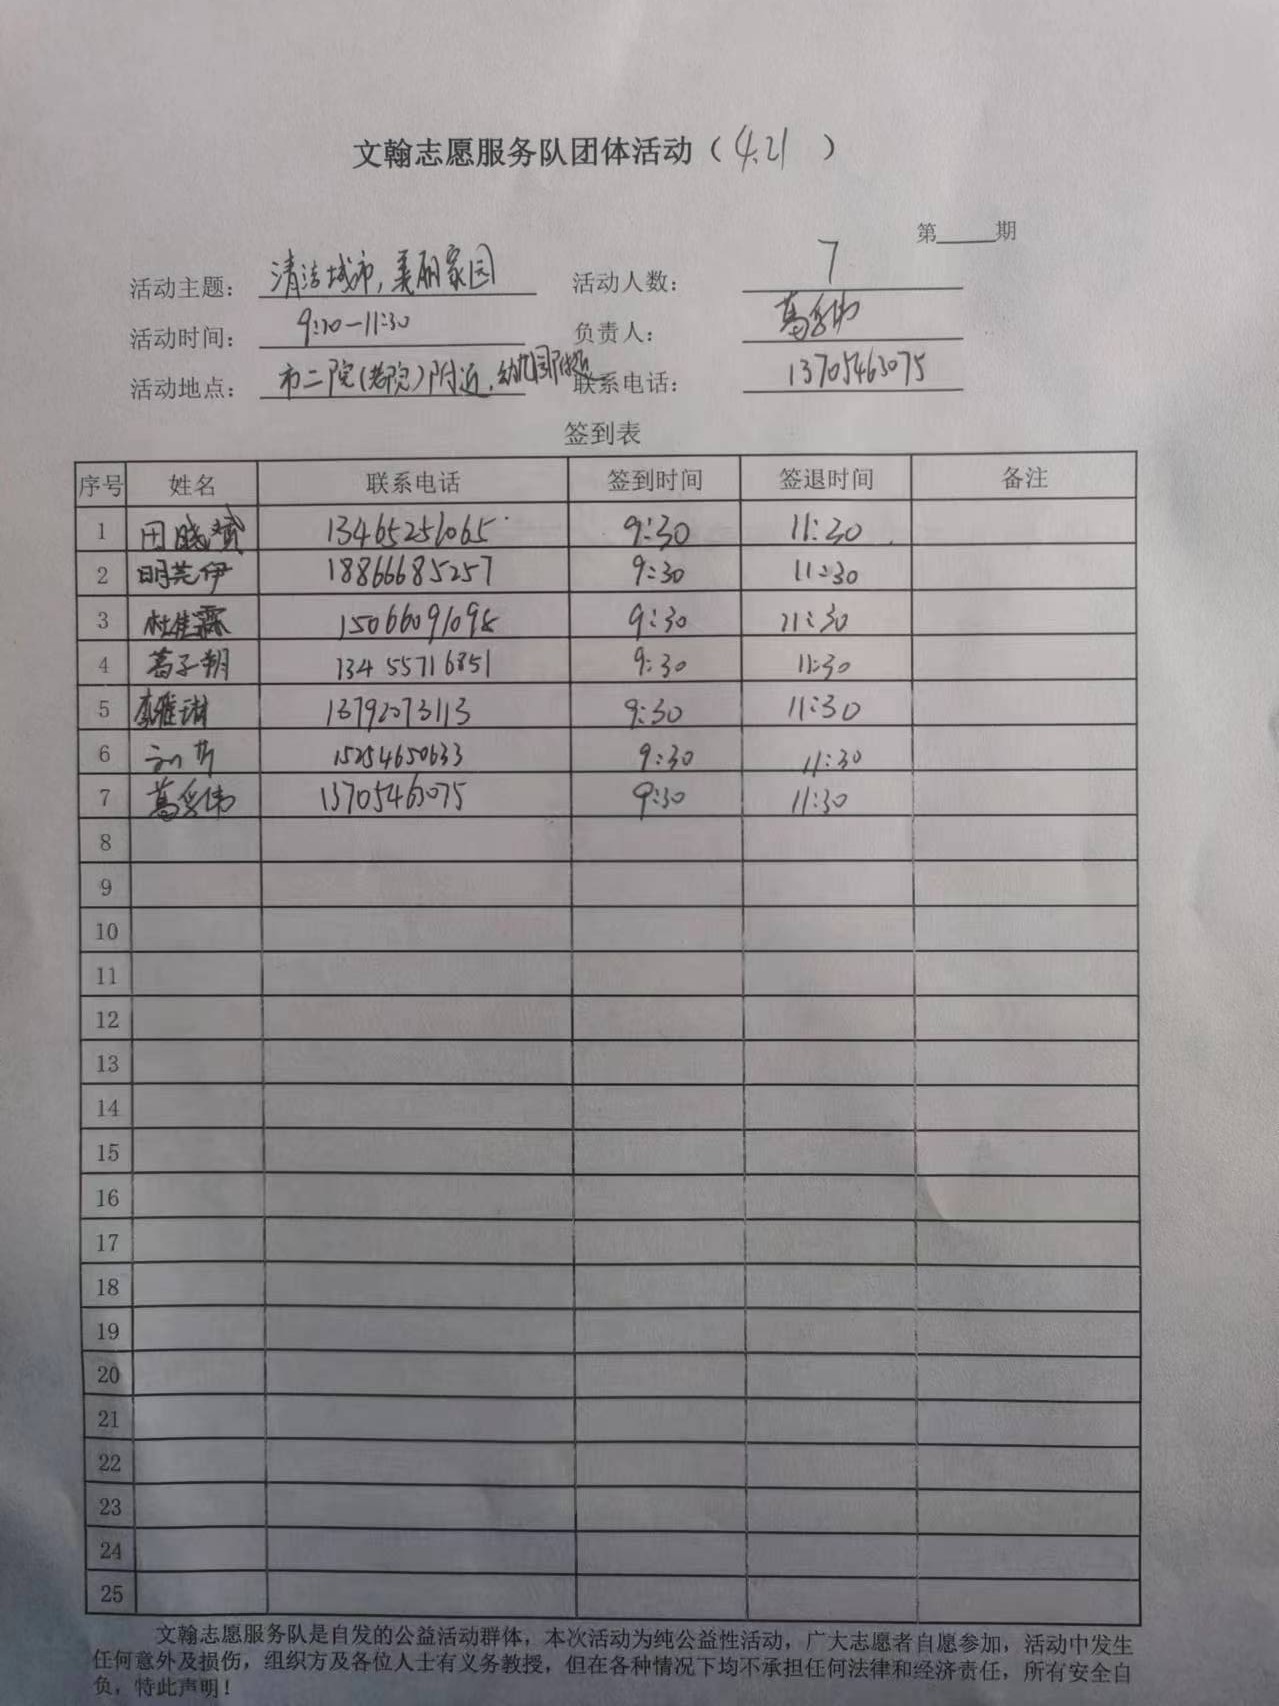 文翰志愿服务队团体活动（4.21）
第____期
活动主题：清洁城市，美丽家园 活动人数：7
活动时间：9:30-11:30 负责人：葛
活动地点：市二院(老院)附近，幼儿园附近 联系电话：13705463075
签到表
序号 姓名 联系电话 签到时间 签退时间 备注
1 田晓 13465251065 9:30 11:30
2 明芫伊 18866685257 9:30 11:30
3 杜佳霖 15066091098 9:30 11:30
4 葛子朝 13455716851 9:30 11:30
5 李雅琪 13792073113 9:30 11:30
6 15254650633 9:30 11:30
7 葛 13705463075 9:30 11:30
8
9
10
11
12
13
14
15
16
17
18
19
20
21
22
23
24
25
文翰志愿服务队是自发的公益活动群体，本次活动为纯公益性活动，广大志愿者自愿参加，活动中发生
任何意外及损伤，组织方及各位人士有义务教授，但在各种情况下均不承担任何法律和经济责任，所有安全自
负，特此声明！